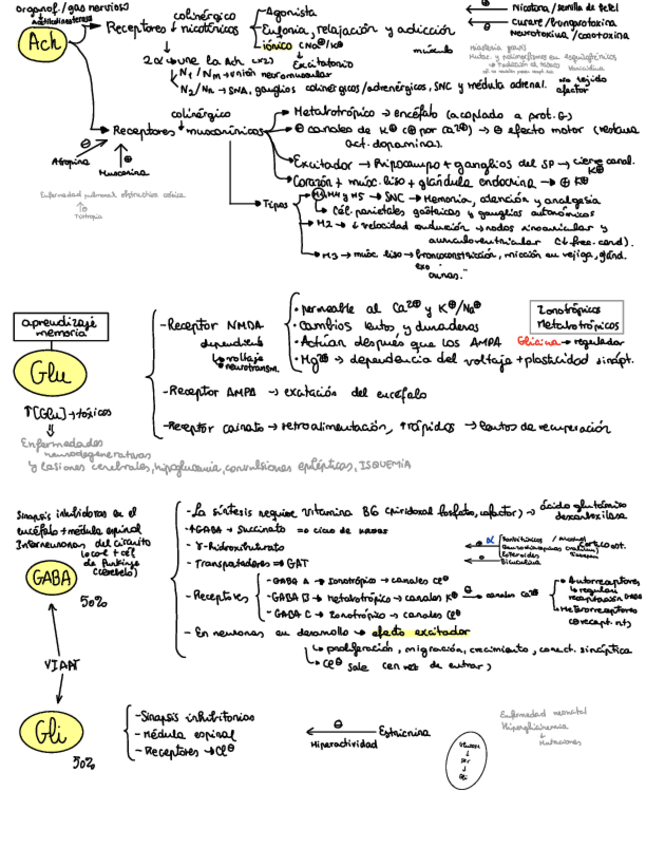 organof./gas nervioso
Acetilcolinesterasa
Ach
colinérgico
Receptores nicotínicos
Agonista
Euforia, relajación y adicción
iónico (Na⊕/K⊕)
Excitatorio
2α une la Ach (x2)
N1 / Nm → unión neuromuscular
N2/Nn → SNA, ganglios colinérgicos/adrenérgicos, SNC y médula adrenal.
Nicotina / semilla de betel
⊖ Curare / bungarotoxina
Neurotoxina / cobotoxina
músculo
miastenia gravis
No tejido
efector
colinérgico
Receptores muscarínicos
⊖
Atropina
⊕
Muscarina
Enfermedad pulmonar obstructiva crónica
Tiotropio
Metabotrópico → encéfalo (acoplado a prot. G)
⊖ canales de K⊕ (⊕ por Ca2⊕) → ⊖ efecto motor (restaura
act. dopamina).
Excitador → Hipocampo + ganglios del SP → cierre canal.
K⊕
Corazón + músc. liso + glándula endocrina → ⊕ K⊕
Tipos
M1, M4 y M5 → SNC → Memoria, atención y analgesia
Cél. parietales gástricas y ganglios autonómicos
M2 → ↓ velocidad conducción → nodos sinoauricular y
auriculoventricular (↓ frec. card).
M3 → músc. liso → broncoconstricción, micción en vejiga, gland.
exo
crinas.
aprendizaje
memoria
Glu
↑[Glu] → tóxicos
Enfermedades
neurodegenerativas
y lesiones cerebrales, hipoglucemia, convulsiones epilépticas, ISQUEMIA
- Receptor NMDA
dependiente
voltaje
neurotransm.
· permeable al Ca2⊕ y K⊕/Na⊕
· Cambios lentos y duraderos
· Actúan después que los AMPA
· Mg2⊕ → dependencia del voltaje + plasticidad sinápt.
Ionotrópicos
Metabotrópicos
Glicina → regulador
- Receptor AMPA → excitación del encéfalo
- Receptor cainato → retroalimentación, ↑rápidos → lentos de recuperación
Sinapsis inhibidoras en el
encéfalo + médula espinal
Interneuronas del circuito
local + cél
de Purkinje
(cerebelo)
GABA
50%
VIAAT
Gli
50%
- La síntesis requiere vitamina B6 (piridoxal fosfato, cofactor) → ácido glutámico
descarboxilasa
- ↑GABA → Succinato => ciclo de Krebs
- γ-hidroxibutirato
- Transportadores ⇒ GAT
- Receptores
- GABA A → Ionotrópico → canales Cl⊖
- GABA B → metabotrópico → canales K⊕ ⊖ canales Ca2⊕
- GABA C → Ionotrópico → canales Cl⊖
Barbitúricos / alcohol
Benzodiacepinas (valium)
Esteroides
⊖ Bicuculina
Autorreceptores
regulan
recaptación GABA
Heterorreceptores
(o recept. nt)
- En neuronas en desarrollo → efecto excitador
proliferación, migración, crecimiento, conect. sináptica
Cl⊖ sale (en vez de entrar)
- Sinapsis inhibitorias
- Médula espinal
- Receptores → Cl⊖
⊖
Hiperactividad
Estricnina
Enfermedad neonatal
Hiperglicinemia
Mutaciones
Ser
Gli